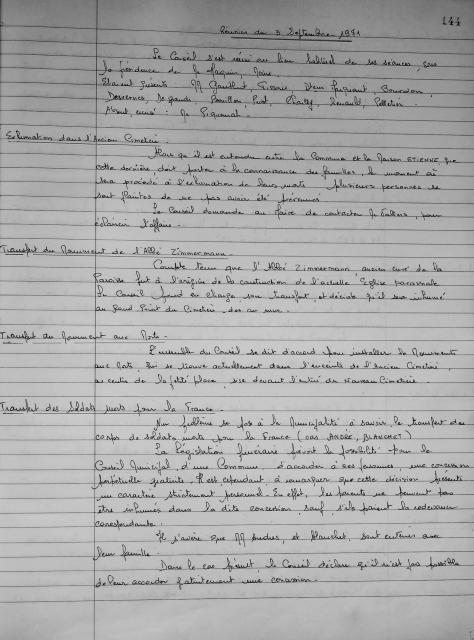 144
Réunion du 3 Septembre 1971
Le Conseil s'est réuni au lieu habituel de ses séances, sous
la présidence de M. Jaquin, Maire.
Etaient Présents MM Gauthet, Pissons,
Descernes, Degrandi, Pouillon, Prot, Renault, Pelletier.
Absent, excusé : M. Piquemal.
Exhumation dans l'Ancien Cimetière.
Alors qu'il est entendu entre la Commune et la Maison ETIENNE, que
cette dernière doit porter à la connaissance des familles, le moment où
sera procédé à l'exhumation de leurs morts, plusieurs personnes se
sont plaintes de ne pas avoir été prévenues.
Le Conseil demande au Maire de contacter M. pour
éclaircir l'affaire.
Transfert du Monument de l'Abbé Zimmermann.
Compte tenu que l'Abbé Zimmermann, ancien curé de la
Paroisse fut à l'origine de la construction de l'actuelle Eglise paroissiale
Le Conseil prend en charge son transfert, et décide qu'il sera inhumé
au grand Point du Cimetière
Transfert du Monument aux Morts.
L'ensemble du Conseil se dit d'accord pour installer le Monument
aux Morts, qui se trouve actuellement dans l'enceinte de l'Ancien Cimetière,
au centre de la petite place, sise devant l'entrée du Nouveau Cimetière.
Transfert des Soldats morts pour la France.
Un problème se pose à la Municipalité à savoir, le transfert des
corps de soldats morts pour la France (cas ANDRÉ, BLANCHET)
La Législation funéraire prévoit la possibilité pour le
Conseil Municipal, d'une Commune, d'accorder à ces personnes, une concession
perpétuelle gratuite. Il est cependant, à remarquer que cette décision présente
un caractère strictement personnel. En effet, les parents ne peuvent pas
être inhumés dans la dite concession, sauf s'ils paient la redevance
correspondante.
Il s'avère que MM Andres, et Blanchet, sont enterrés avec
leur famille.
Dans le cas présent, le Conseil déclare qu'il n'est pas possible
de leur accorder gratuitement une concession.